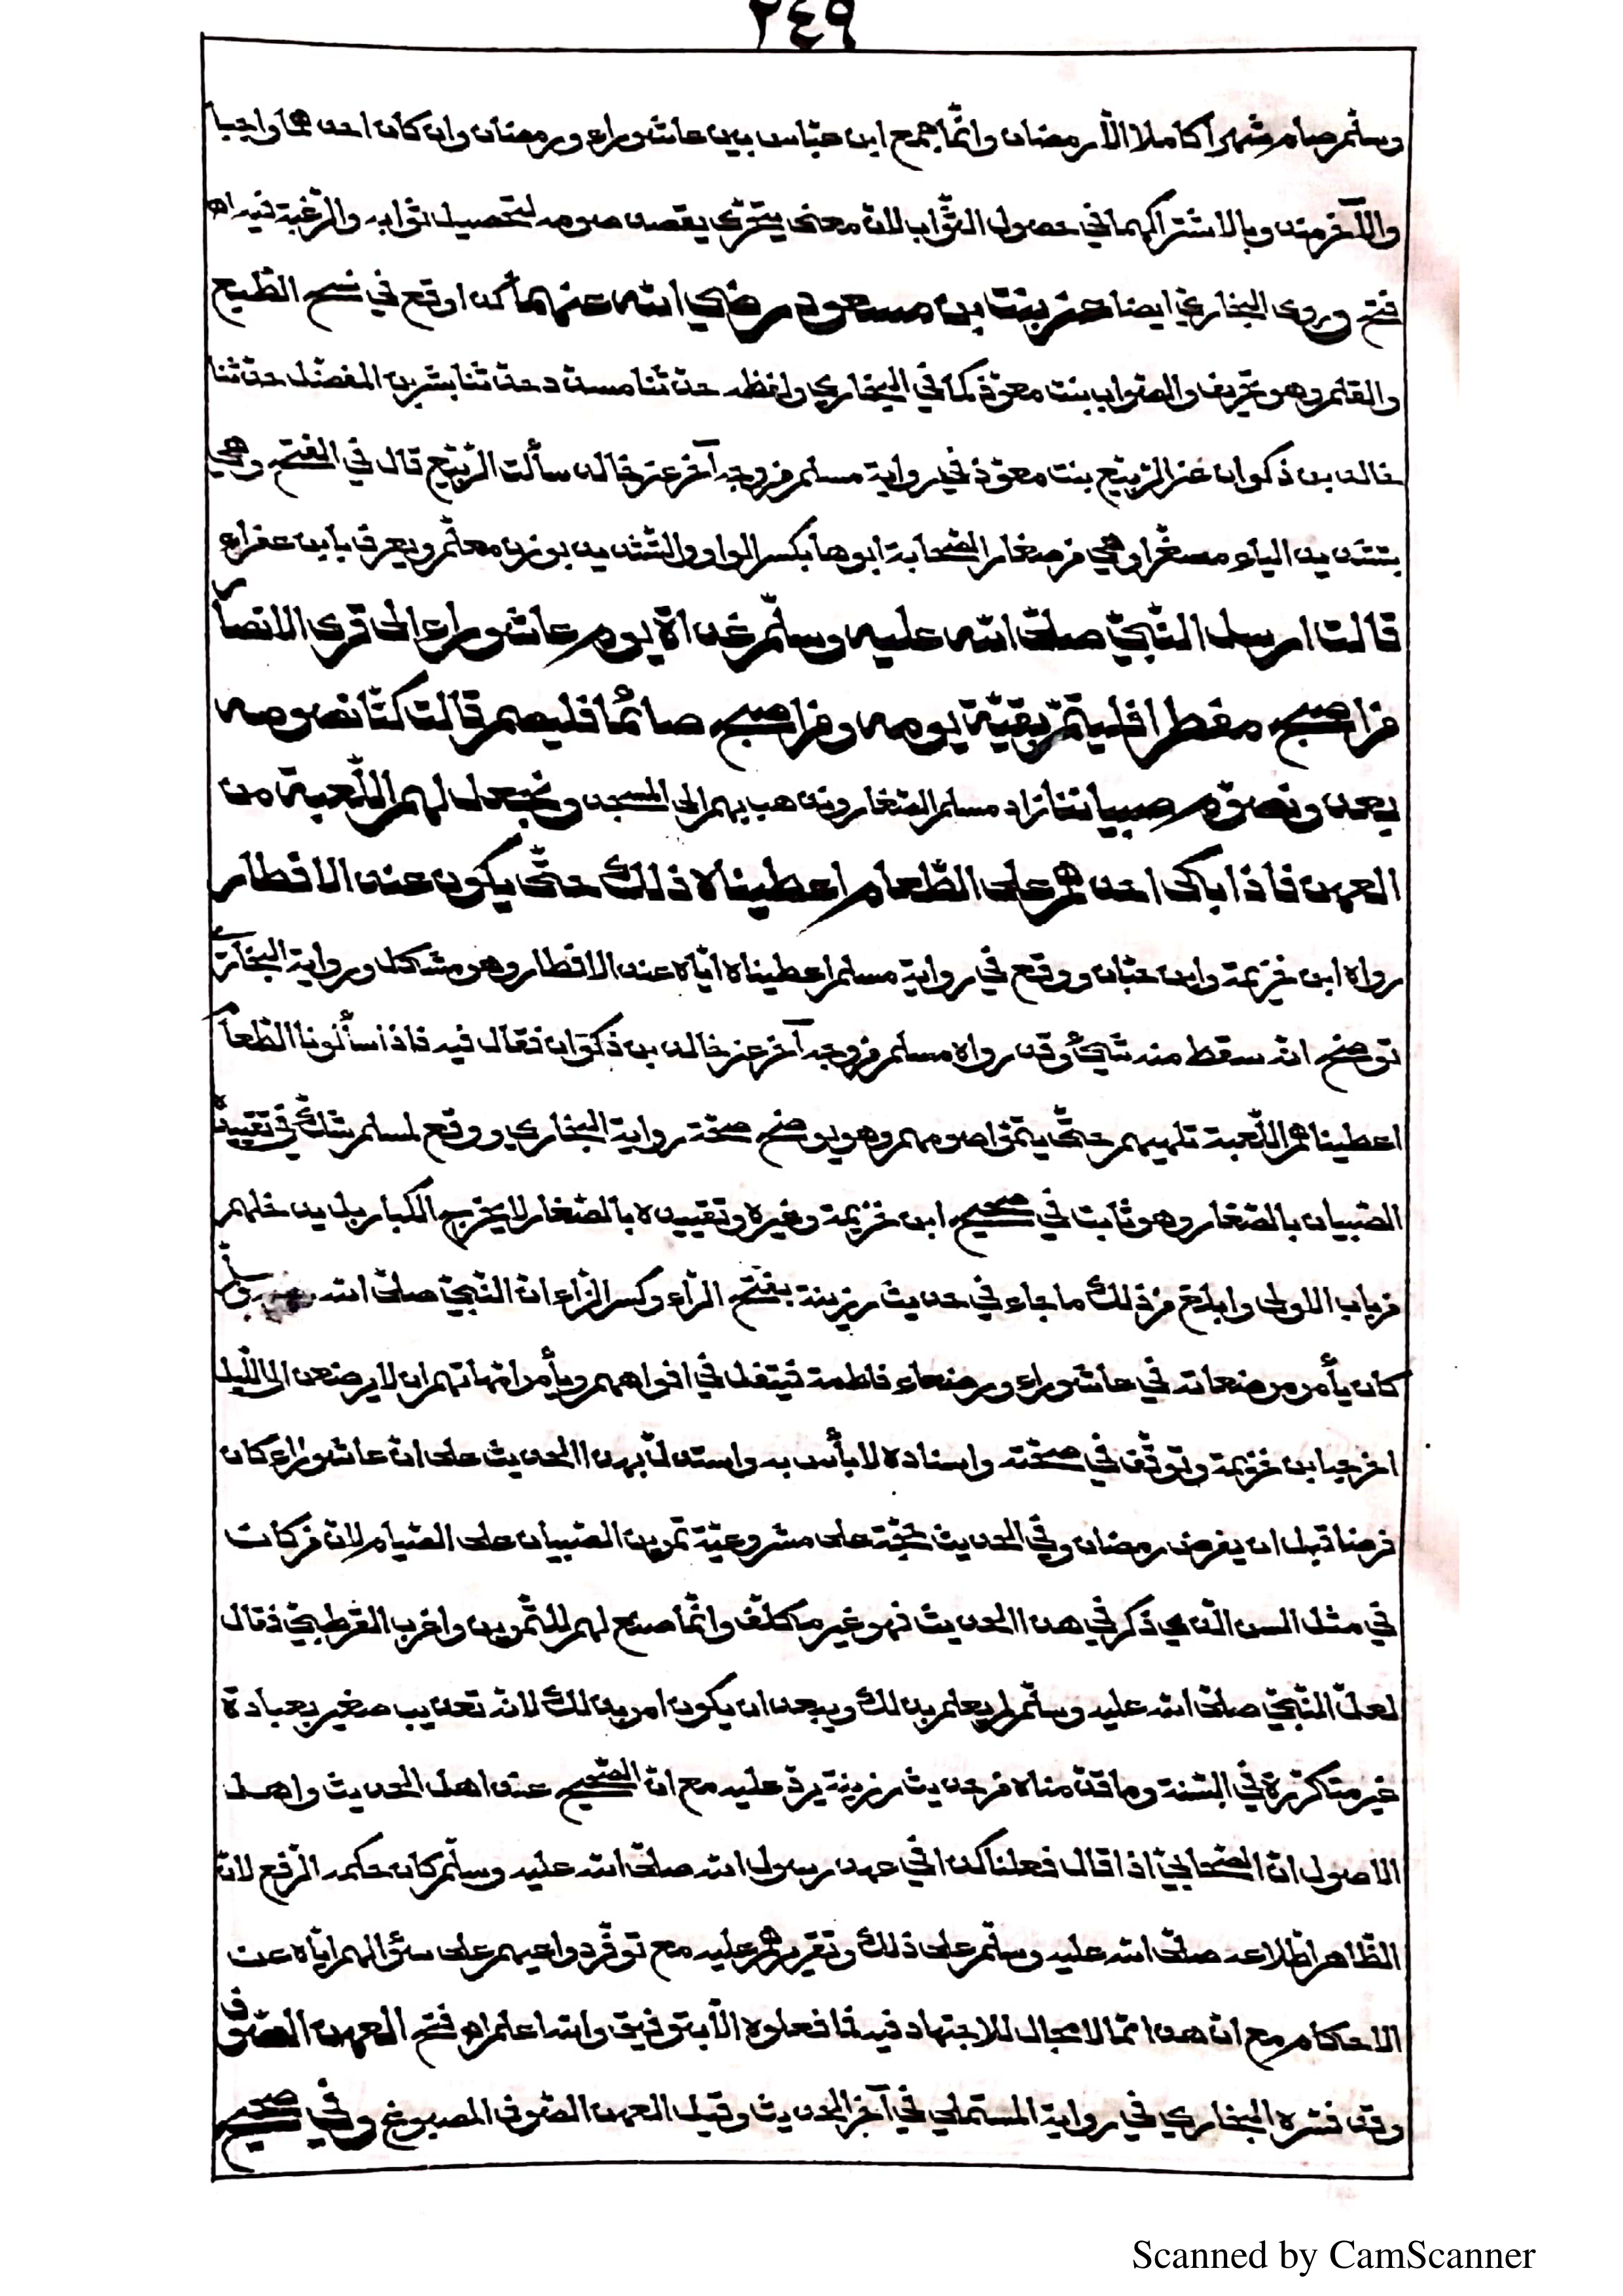 ٢٤٩
وسلّم صام شهرا كاملا الّا رمضان وانّما جمع ابن عبّاس بين عاشوراء ورمضان وان كان احدهما واجبا
والآخر مندوبا لاشتراكهما في حصول الثّواب لانّ معنى يتحرّى يقصد صومه لتحصيل ثوابه والرّغبة فيه اه
فتح وروى البخاري ايضا عن بنت بن مسعود رضي الله عنهما كذا وقع في نسخ الطّبع
والقلم وهو تحريف والصّواب بنت معوّذ كما في البخاري ولفظه حدّثنا مسدّد حدّثنا بشر بن المفضّل حدّثنا
خالد بن ذكوان عن الرّبيّع بنت معوّذ في رواية مسلم من وجه آخر عن خالد سألت الرّبيّع قال في الفتح وهي
بتشديد الياء مصغّرا وهي من صغار الصّحابة ابوها بكسر الواو والتّشديد بوزن معلّم ويعرف بابن عفراء
قالت ارسل النّبيّ صلّى الله عليه وسلّم غداة يوم عاشوراء الى قرى الانصار
من اصبح مفطرا فليتمّ بقيّة يومه ومن اصبح صائما فليصم قالت كنّا نصومه
بعد ونصوّم صبياننا زاد مسلم الصّغار ونذهب بهم الى المسجد ونجعل لهم اللّعبة من
العهن فاذا بكى احدهم على الطّعام اعطيناه ذلك حتّى يكون عند الافطار
رواه ابن خزيمة وابن حبّان ووقع في رواية مسلم اعطيناه ايّاه عند الافطار وهو مشكل ورواية البخاري
توضح انّه سقط منه شيء وقد رواه مسلم من وجه آخر عن خالد بن ذكوان فقال فيه فاذا سألونا الطّعام
اعطيناهم اللّعبة تلهيهم حتّى يتمّوا صومهم وهو يوضح صحّة رواية البخاري ووقع لمسلم شكّ في تقييده
الصّبيان بالصّغار وهو ثابت في صحيح ابن خزيمة وغيره وتقييده بالصّغار لا يخرج الكبار بل يدخلهم
من باب الاولى وابلغ من ذلك ما جاء في حديث رزينة بفتح الرّاء وكسر الزّاء انّ النّبيّ صلّى الله عليه وسلّم
كان يأمر مرضعاته في عاشوراء ورضعاء فاطمة فيتفل في افواههم ويأمر امّهاتهم ان لا يرضعن الى اللّيل
اخرجه ابن خزيمة وتوقّف في صحّته واسناده لا بأس به واستدلّ بهذا الحديث على انّ عاشوراء كان
فرضا قبل ان يفرض رمضان وفي الحديث حجّة على مشروعيّة تمرين الصّبيان على الصّيام لانّ من كان
في مثل السن الّذي ذكر في هذا الحديث فهو غير مكلّف وانّما صنع لهم للتّمرين واغرب القرطبيّ فقال
لعلّ النّبيّ صلّى الله عليه وسلّم لم يعلم بذلك ويبعد ان يكون امر بذلك لانّه تعذيب صغير بعبادة
غير متكرّرة في السّنة وما قدّمناه من حديث رزينة يردّ عليه مع انّ الصّحيح عند اهل الحديث واهل
الاصول انّ الصّحابيّ اذا قال فعلنا كذا في عهد رسول الله صلّى الله عليه وسلّم كان حكمه الرّفع لانّ
الظّاهر اطّلاعه صلّى الله عليه وسلّم على ذلك وتقريرهم عليه مع توفّر دواعيهم على سؤالهم ايّاه عن
الاحكام مع انّ هذا ممّا لا مجال للاجتهاد فيه فما فعلوه الّا بتوقيف والله اعلم اه فتح العهن الصّوف
وقد فسّره البخاري في رواية المستملي في آخر الحديث وقيل العهن الصّوف المصبوغ وفي صحيح
Scanned by CamScanner